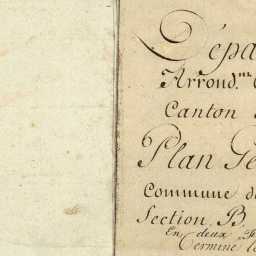 Dépa
Arrond.nt
Canton
Plan Gé
Commune d
Section B
En deux F
Terminé l